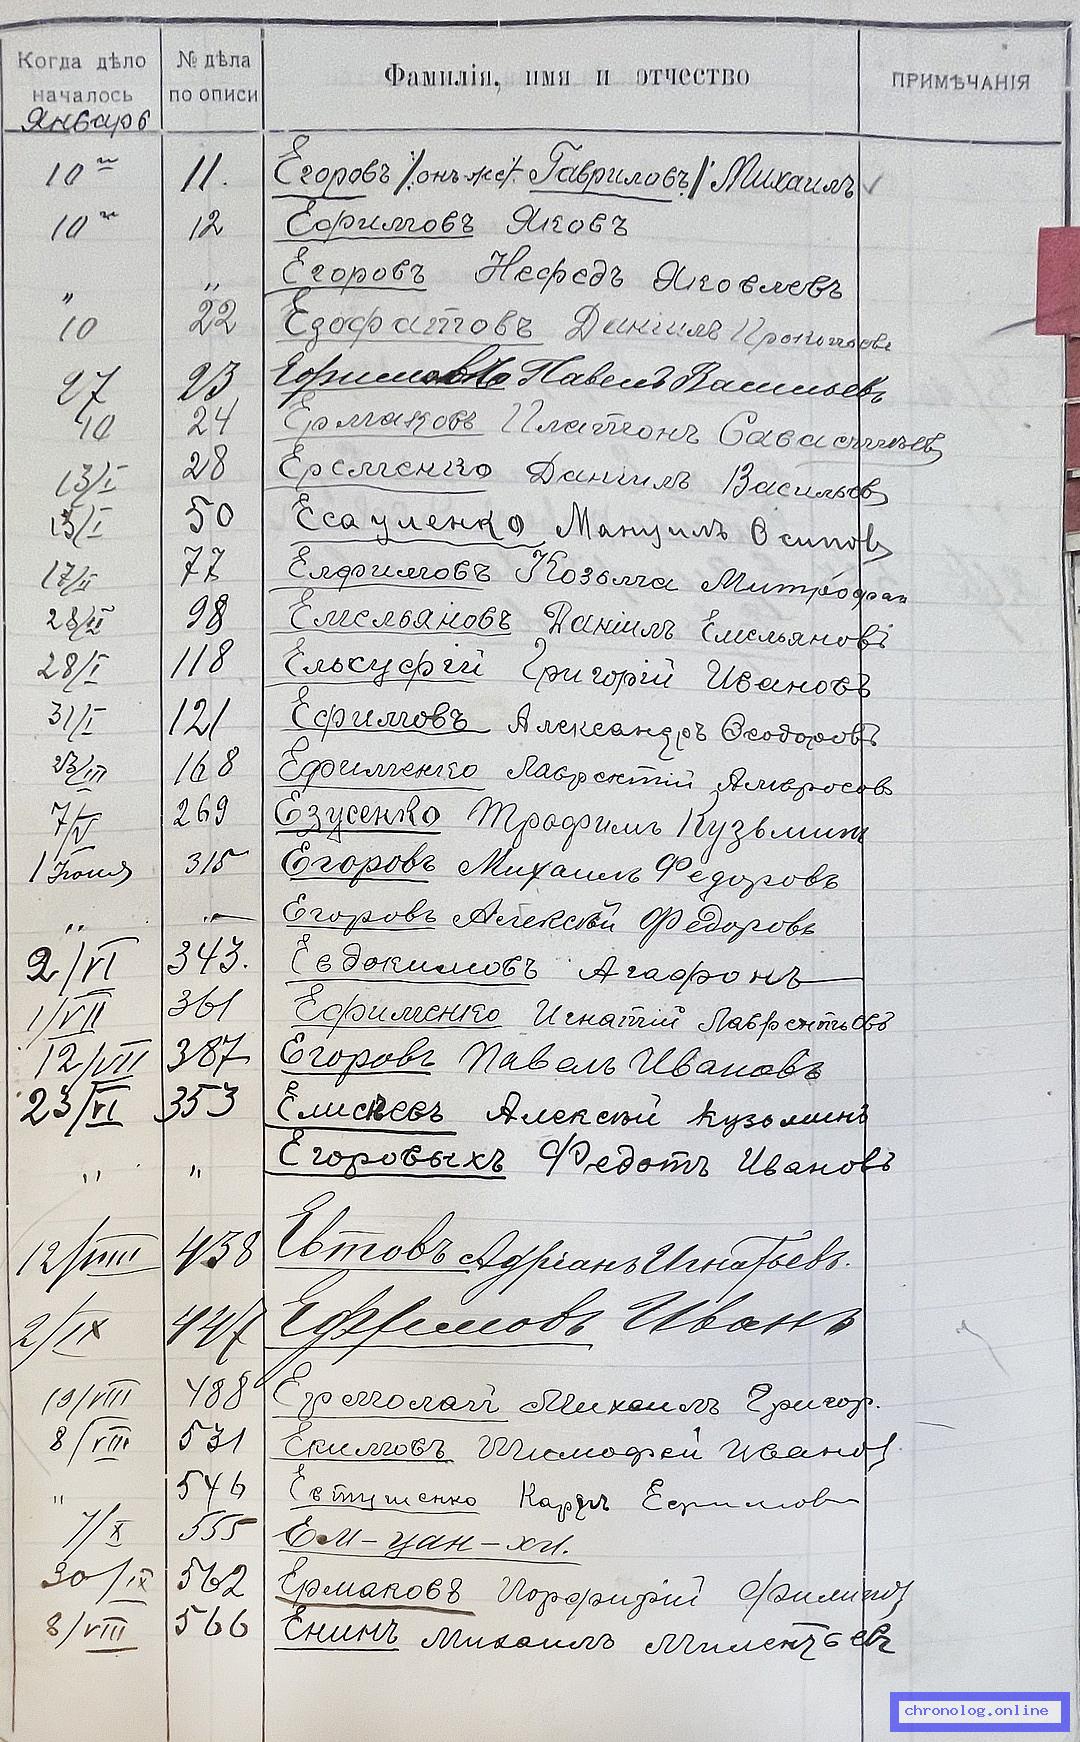 Когда дѣло началось
№ дѣла по описи
Фамилія, имя и отчество
ПРИМѢЧАНІЯ
Январь
10 11. Егоровъ /:онъ же:/ Гавриловъ/ Михаилъ
10 12 Ефимовъ Яковъ
" " Егоровъ Нефедъ Яковлевъ
10 22 Ездофатовъ Даніилъ
27 23 Ефимовъ Павелъ Васильевъ
10 24 Ермаковъ Платонъ
13/I 28 Еременко Даніилъ Васильев
15/I 50 Есауленко Мануилъ Осипов
17/II 77 Елфимовъ Козьма Митрофан
28/II 98 Емельяновъ Даніилъ Емельяновъ
28/I 118 Григорій Ивановъ
31/I 121 Ефимовъ Александръ Ѳеодоровъ
23/III 168 Ефименко Лаврентій Амвросов
7/V 269 Езусенко Трофимъ Кузьмин
1 Іюня 315 Егоровъ Михаилъ Федоровъ
" " Егоровъ Алексѣй Федоровъ
2/VI 343. Евдокимовъ Агафонъ
1/VII 361 Ефименко Игнатій Лаврентьевъ
12/VII 387 Егоровъ Павелъ Ивановъ
23/VI 353 Елисѣевъ Алексѣй Кузьминъ
" " Егоровыхъ Федотъ Ивановъ
12/VIII 438 Евтовъ Адріанъ Игнатьевъ.
2/IX 447 Ефимовъ Иванъ
19/VIII 488 Ермолай Михаилъ Григор.
8/VIII 531 Екимовъ Тимофей Иванов
" 546 Евтушенко Карпъ Ефимов
7/X 555 Ем-цан-хи.
30/IX 562 Ермаковъ Порфирій Филипов
8/VIII 566 Енинъ Михаилъ
chronolog.online